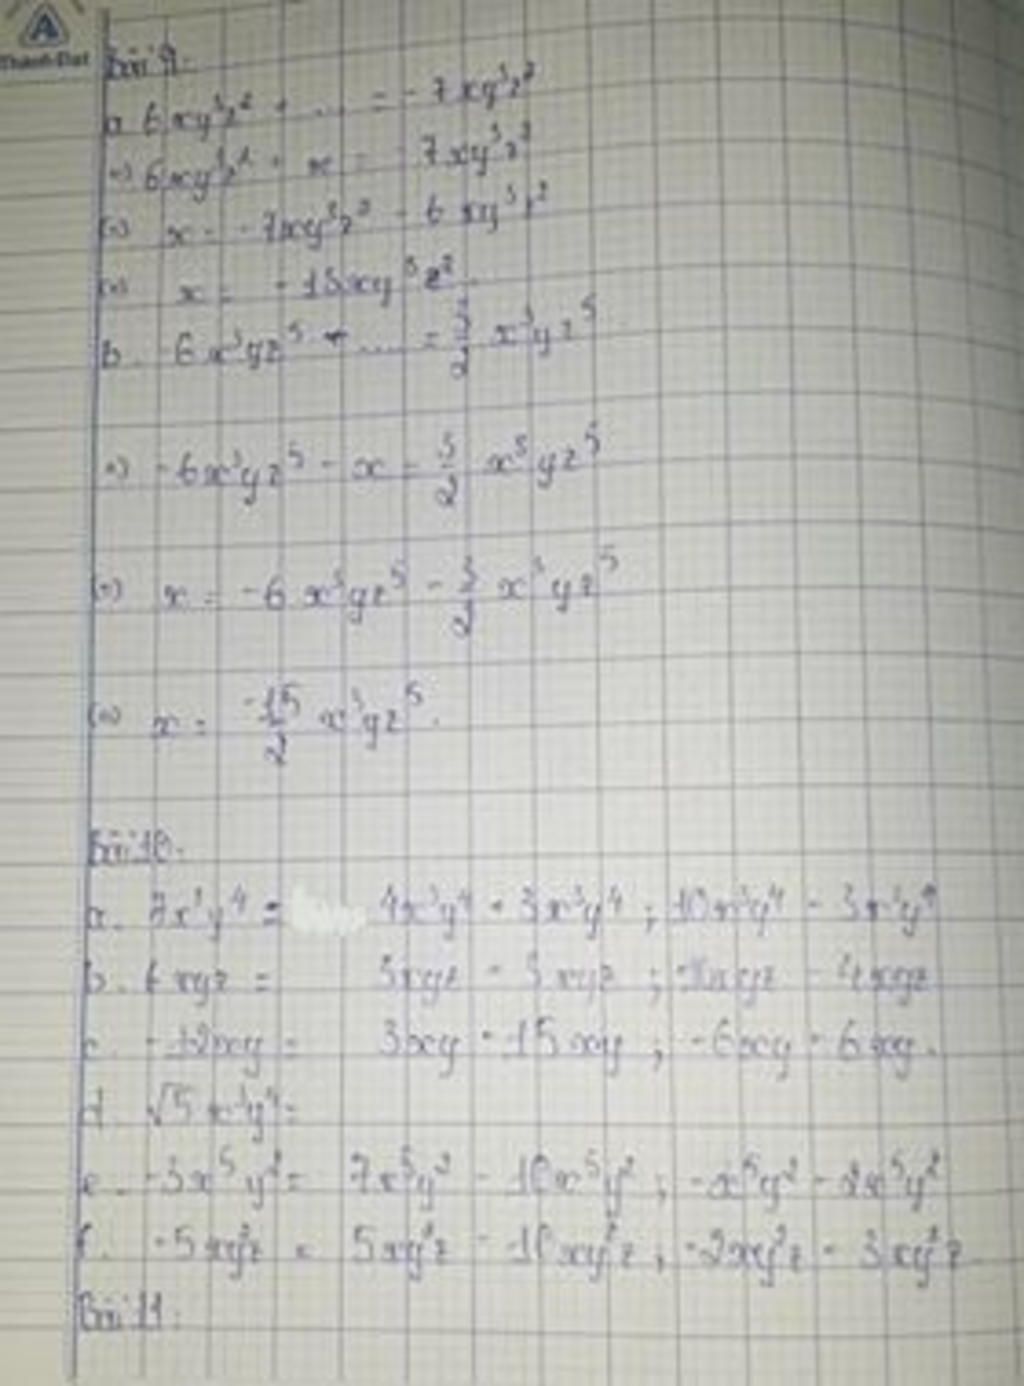 A
Thành Đạt
Bài 9:
a. 6xy³z² + .... = -7xy³z²
(=) 6xy³z² + x = -7xy³z²
(=) x = -7xy³z² - 6xy³z²
(=) x = -13xy³z².
b. 6x³yz⁵ - .... = 3/2 x³yz⁵
(=) -6x³yz⁵ - x = 3/2 x³yz⁵
(=) x = -6x³yz⁵ - 3/2 x³yz⁵
(=) x = -15/2 x³yz⁵.
Bài 10.
a. 7x³y⁴ = 4x³y⁴ + 3x³y⁴ ; 10x³y⁴ - 3x³y⁴
b. 6xyz = 3xyz + 3xyz ; - 4xyz
c. -12xy = 3xy - 15xy ; -6xy - 6xy.
d. √5 x³y⁴ =
e. -3x⁵y² = 7x⁵y² - 10x⁵y² ; -x⁵y² - 2x⁵y²
f. -5xy²z = 5xy²z - 10xy²z ; -2xy²z - 3xy²z
Bài 11: